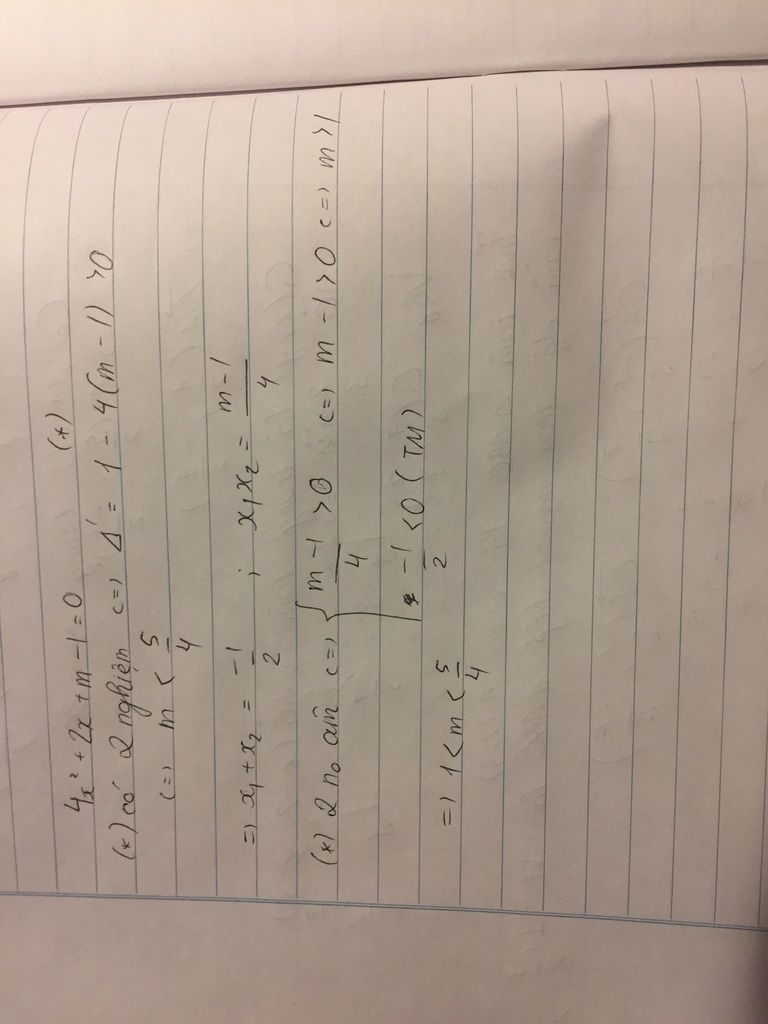 4x² + 2x + m - 1 = 0 (*)
(*) có 2 nghiệm <=> Δ' = 1 - 4(m - 1) > 0
<=> m < 5/4
=> x₁ + x₂ = -1/2 ; x₁x₂ = m-1/4
(*) 2 no âm <=> { m-1/4 > 0 <=> m - 1 > 0 <=> m > 1
-1/2 < 0 (TM)
=> 1 < m < 5/4